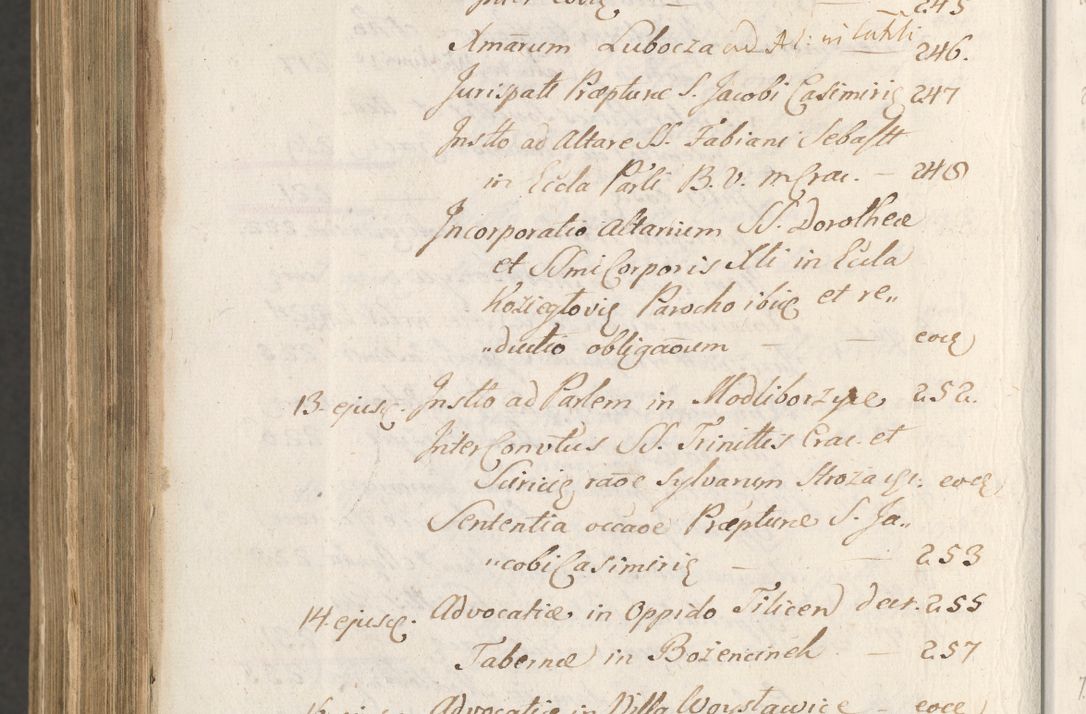 Inter eosdę — — 245
Xmarum Lubocza ad A: in Cahli 246.
Jurispatt Præpturæ S. Jacobi Casimirię 247
Instto ad Altare SS. Fabiani Sebastt
in Eccla Parli B.V. in Crac. — 248
Incorporatio Altarium SS. Dorotheæ
et SSmi Corporis Xti in Eccla
Kozieglovię Parocho ibię et re„
„ductio obligaōum — — eoę
13 ejusę. Instto ad Parlem in Modliborzyce 252.
Inter Convtus SS. Trinittis Crac. et
raōe Sylvarum Stroza eoę
Sententia occaōe Præpturæ S. Ja„
„cobi Casimirię — — 253
14 ejusę. Advocatiæ in Oppido Tilicen decr. 255
Tabernæ in Bozencinch — 257
Advocatię in Villa Woysławice — eoę